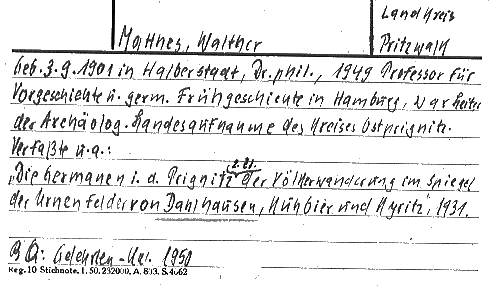 Landkreis
Matthes, Walther Pritzwalk
geb. 3.9.1901 in Halberstadt, Dr. phil., 1949 Professor für
Vorgeschichte u. germ. Frühgeschichte in Hamburg, war Leiter
der Archäolog. Landesaufnahme des Kreises Ostprignitz.
Verfaßte u.a.:
z. Zt.
"Die Germanen i. d. Prignitz der Völkerwanderung im Spiegel
der Urnenfelder von Dahlhausen, Kuhbier und Kyritz", 1931.
BQ: Gelehrten-Kal. 1950
Reg. 10 Stichnote. 1. 50. 232000. A. 803. S. 4062